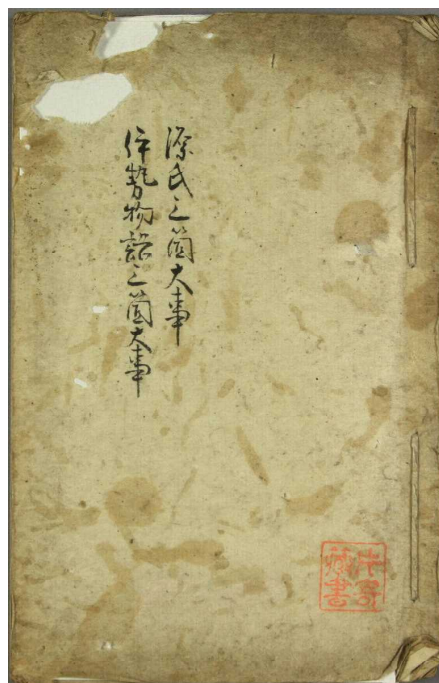 源氏三箇大事
伊勢物語三箇大事
藏書